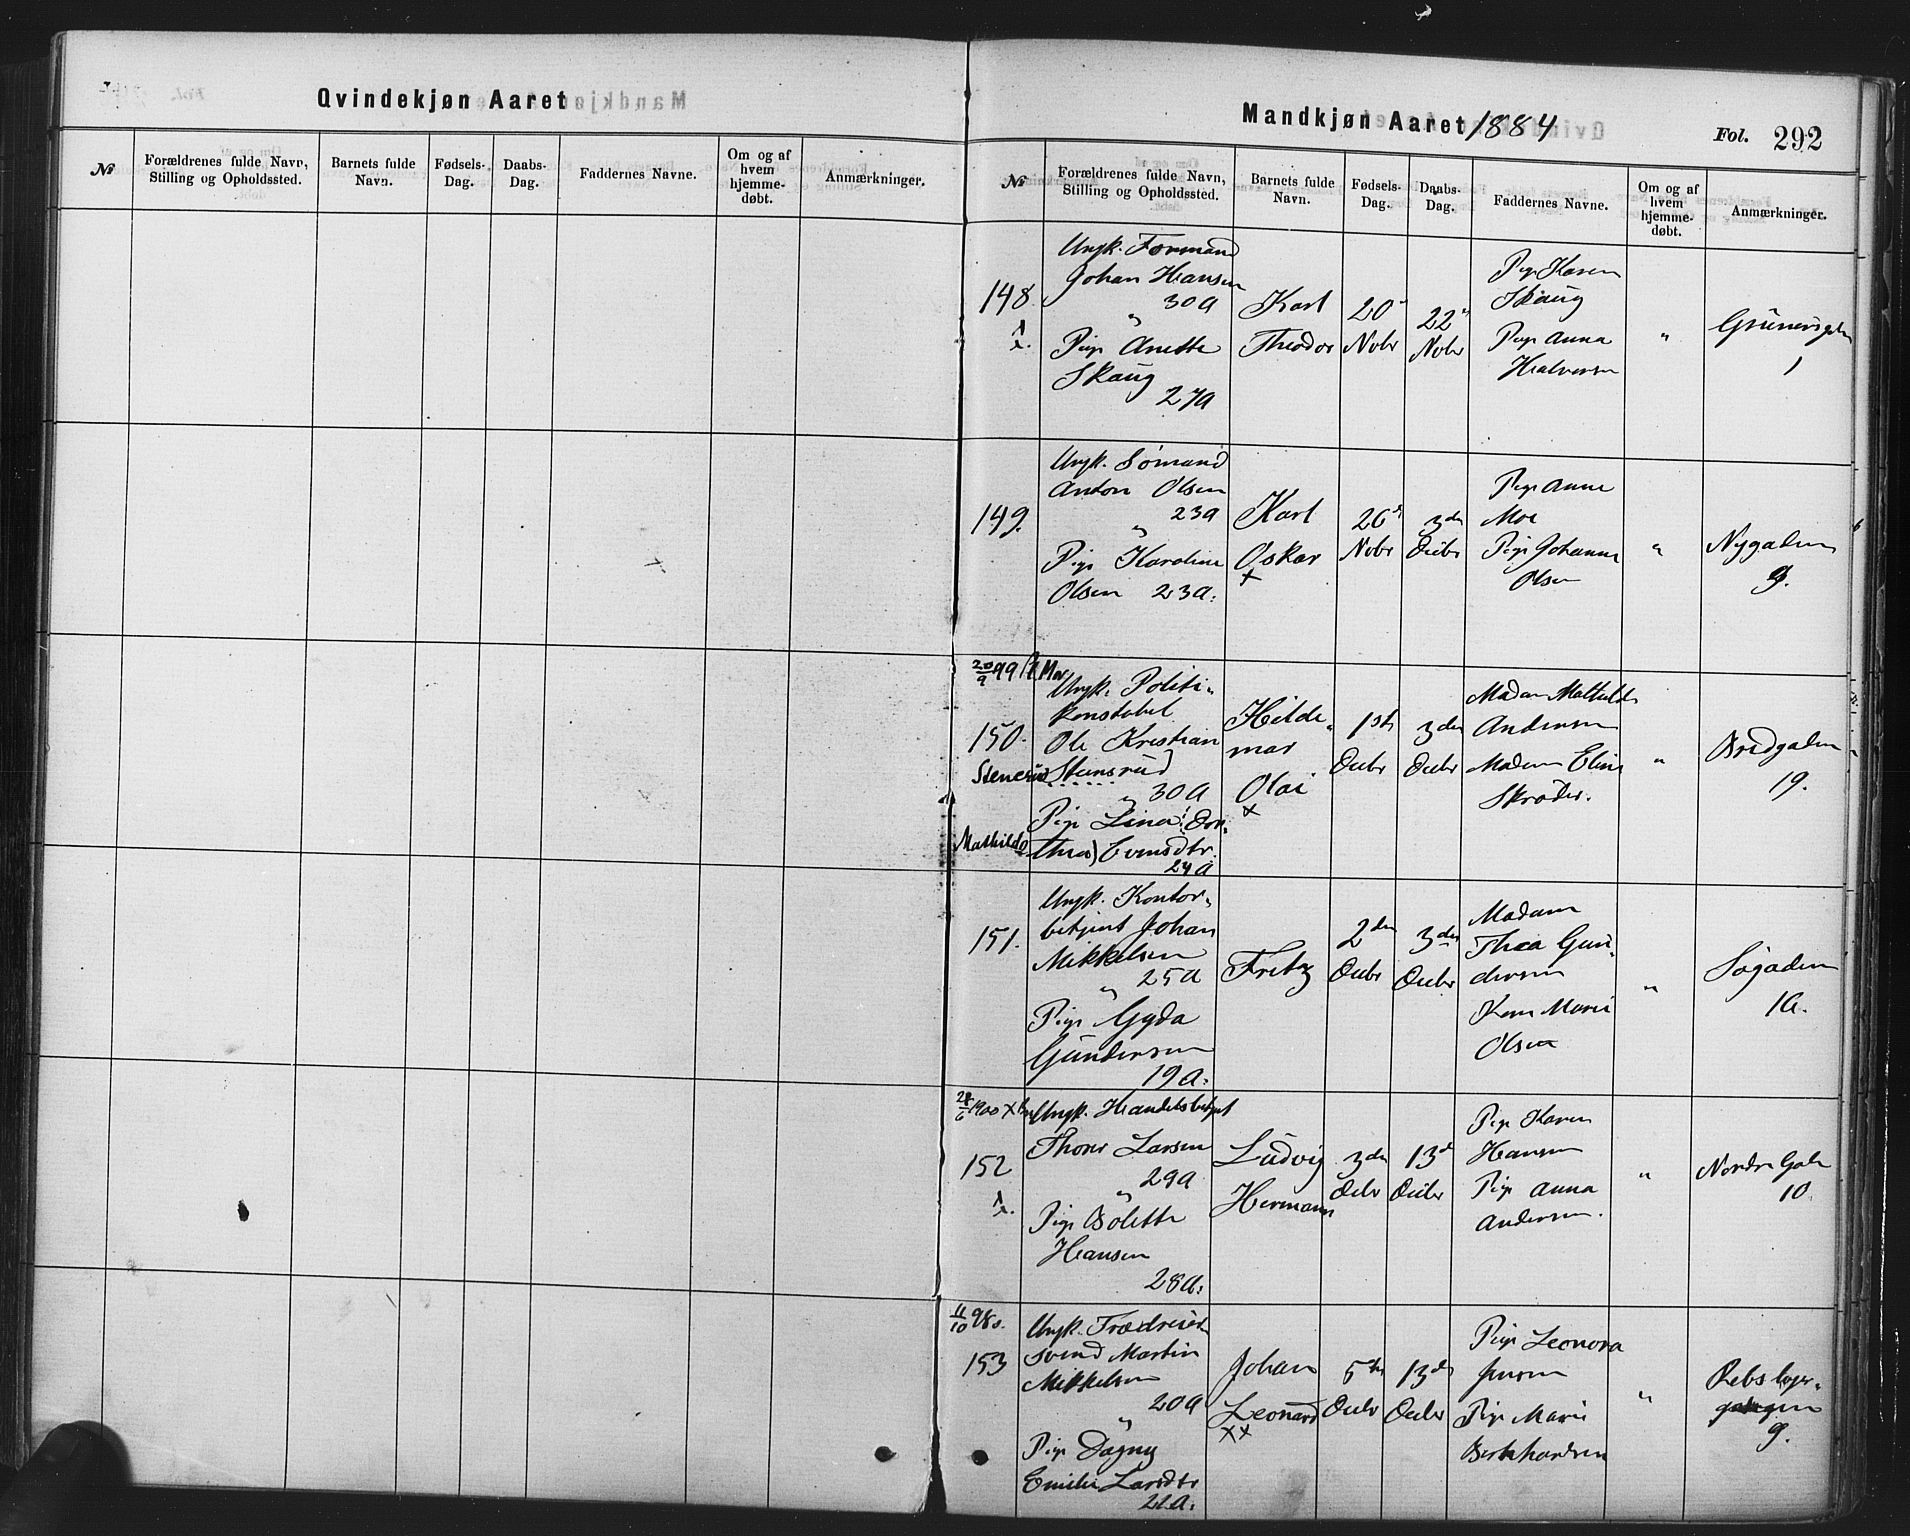 Qvindekjøn Aaret
№
Forældrenes fulde Navn,
Stilling og Opholdssted.
Barnets fulde
Navn.
Fødsels-
Dag.
Daabs-
Dag.
Faddernes Navne.
Om og af
hvem
hjemme-
døbt.
Anmærkninger.
Mandkjøn Aaret 1884
Fol. 292
№
Forældrenes fulde Navn,
Stilling og Opholdssted.
Barnets fulde
Navn.
Fødsels-
Dag.
Daabs-
Dag.
Faddernes Navne.
Om og af
hvem
hjemme-
døbt.
Anmærkninger.
148
Ungk. Formand
Johan Hansen
30 A
"
Pige Anette
Skaug
27 A
Karl
Theodor
20
Nobr
22
Nobr
Pige Karen
Skaug
Pige Anna
Halvorsen
"
1
149.
Ungk. Sømand
Anton Olsen
23 A
"
Pige Karoline
Olsen 23 A.
Karl
Oskar
x
26
Nobr
3die
Decbr
Pige Anne
Moe
Pige Johanne
Olsen
"
Nygaden
9.
20/9 99
150.
Stenerud
Mathilde
Ungk. Politi-
konstabel
Ole Kristian
Stensrud
"
30 A
Pige Lina (Doro-
thea) Evensdtr.
24 A
Hilde-
mar
Olai
x
1ste
Decbr
3die
Decbr
Madam Mathilde
Andersen
Madam Eline
Skrøder.
"
Bredgaden
19.
151.
Ungk. Kontor-
betjent Johan
Mikkelsen
25 A
"
Pige Gyda
Gundersen
19 A.
Fritz
2den
Decbr
3die
Decbr
Madam
Thea Gun-
dersen
Marie
Olsen
"
Søgaden
16.
28/6 1900
152
Ungk. Handelsbetjent
Larsen
29 A
"
Pige Bolette
Hansen
28 A.
Ludvig
Hermann
3die
Decbr
13de
Decbr
Pige Karen
Hansen
Pige Anna
Andersen.
"
Nordre Gade
10.
11/10 98
153
Ungk.
Svend Martin
Mikkelsen
20 A
"
Pige Dagny
Emilie Larsdtr
22 A.
Johan
Leonard
xx
5te
Decbr
13de
Decbr
Pige Leonora
Jensen
Pige Marie
"
9.